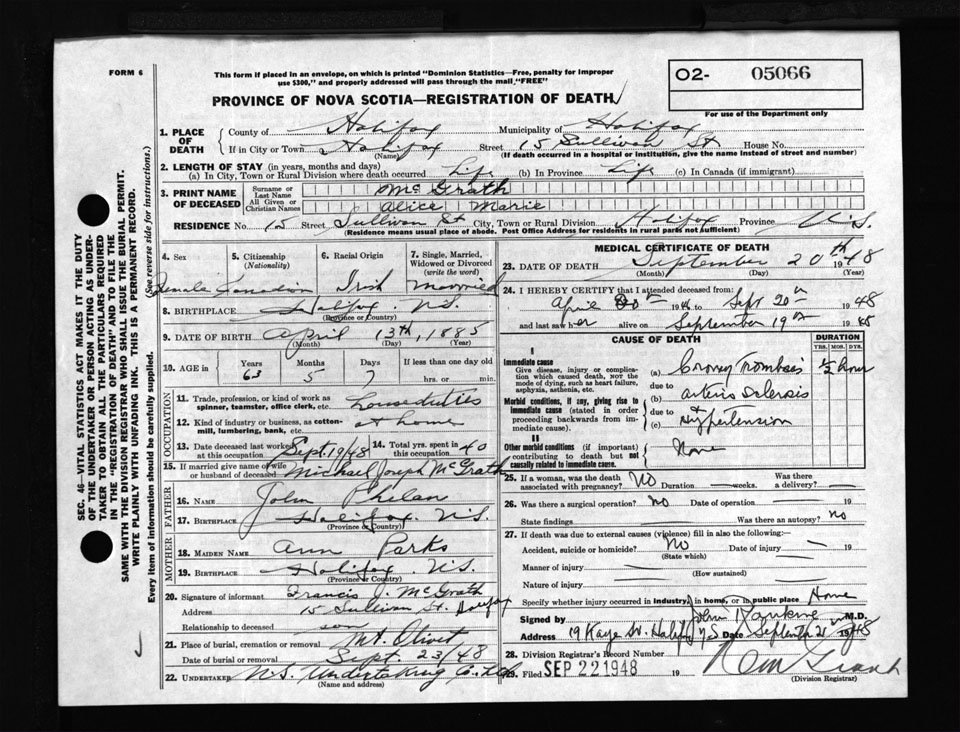 FORM 6
This form if placed in an envelope, on which is printed "Dominion Statistics—Free, penalty for improper
use $300," and properly addressed will pass through the mail "FREE"
O2- 05066
For use of the Department only
PROVINCE OF NOVA SCOTIA—REGISTRATION OF DEATH
1. PLACE OF DEATH
County of Halifax Municipality of Halifax
If in City or Town Halifax Street 15 Sullivan St House No.
(Name) (If death occurred in a hospital or institution, give the name instead of street and number)
2. LENGTH OF STAY (in years, months and days)
(a) In City, Town or Rural Division where death occurred Life (b) In Province Life (c) In Canada (if immigrant)
3. PRINT NAME OF DECEASED
Surname or Last Name McGrath
All Given or Christian Names Alice Marie
RESIDENCE No. 15 Street Sullivan St City, Town or Rural Division Halifax Province N.S.
(Residence means usual place of abode. Post Office Address for residents in rural parts not sufficient)
4. Sex 5. Citizenship (Nationality) 6. Racial Origin 7. Single, Married, Widowed or Divorced (write the word)
Female Canadian Irish Married
8. BIRTHPLACE Halifax N.S.
(Province or Country)
9. DATE OF BIRTH April 13th, 1885
(Month) (Day) (Year)
10. AGE in Years Months Days If less than one day old
63 5 7 hrs. or min.
OCCUPATION
11. Trade, profession, or kind of work as spinner, teamster, office clerk, etc. house duties
12. Kind of industry or business, as cotton-mill, lumbering, bank, etc. at home
13. Date deceased last worked at this occupation Sept. 1948 14. Total yrs. spent in this occupation 40
15. If married give name of wife or husband of deceased Michael Joseph McGrath
FATHER
16. NAME John Phelan
17. BIRTHPLACE Halifax N.S.
(Province or Country)
MOTHER
18. MAIDEN NAME Ann Parks
19. BIRTHPLACE Halifax N.S.
(Province or Country)
20. Signature of informant Francis J. McGrath
Address 15 Sullivan St. Halifax
Relationship to deceased son
21. Place of burial, cremation or removal Mt. Olivet
Date of burial or removal Sept. 23/48
22. UNDERTAKER N.S. Undertaking Co. Ltd.
(Name and address)
MEDICAL CERTIFICATE OF DEATH
23. DATE OF DEATH September 20th 1948
(Month) (Day) (Year)
24. I HEREBY CERTIFY that I attended deceased from:
April 19 to Sept 20th 1948
and last saw her alive on September 19th 19
CAUSE OF DEATH DURATION
YRS. MOS. DYS.
I
Immediate cause
Give disease, injury or complication which caused death, NOT the mode of dying, such as heart failure, asphyxia, asthenia, etc.
(a) Crony Trombosis ½ hour
due to
Morbid conditions, if any, giving rise to immediate cause (stated in order proceeding backwards from immediate cause).
(b) arterio sclerosis
due to
(c) Hypertension
II
Other morbid conditions (if important) contributing to death but not causally related to immediate cause.
None
25. If a woman, was the death associated with pregnancy? No Duration weeks. Was there a delivery?
26. Was there a surgical operation? No Date of operation 19
State findings Was there an autopsy? no
27. If death was due to external causes (violence) fill in also the following:—
Accident, suicide or homicide? No Date of injury 19
(State which)
Manner of injury
(How sustained)
Nature of injury
Specify whether injury occurred in Industry, in home, or in public place Home
Signed by John Rankine M.D.
Address 19 Kaye St. Halifax N.S. Date September 21 1948
28. Division Registrar's Record Number
29. Filed SEP 22 1948 19
(Division Registrar)
SEC. 46—VITAL STATISTICS ACT MAKES IT THE DUTY
OF THE UNDERTAKER OR PERSON ACTING AS UNDER-
TAKER TO OBTAIN ALL THE PARTICULARS REQUIRED
IN THE "REGISTRATION OF DEATH" AND TO FILE THE
SAME WITH THE DIVISION REGISTRAR WHO SHALL ISSUE THE BURIAL PERMIT.
WRITE PLAINLY WITH UNFADING INK. THIS IS A PERMANENT RECORD.
Every item of information should be carefully supplied. (See reverse side for instructions.)